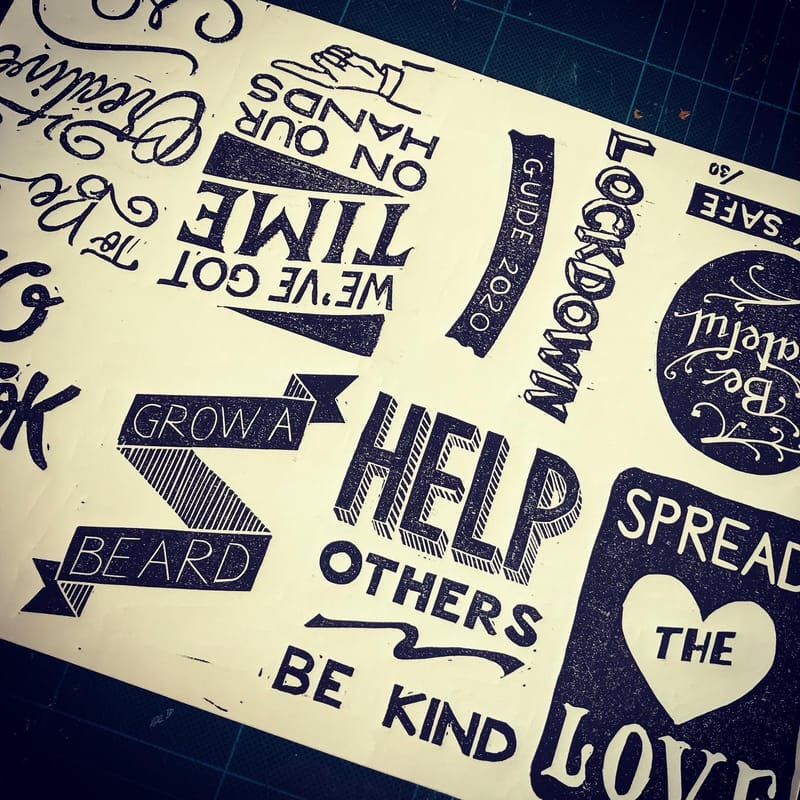 WE'VE GOT
TIME
ON OUR
HANDS
To Be
Creative
LOCKDOWN
GUIDE 2020
/30
SAFE
Be
ateful
GROW A
BEARD
HELP
OTHERS
BE KIND
SPREAD
THE
LOVE